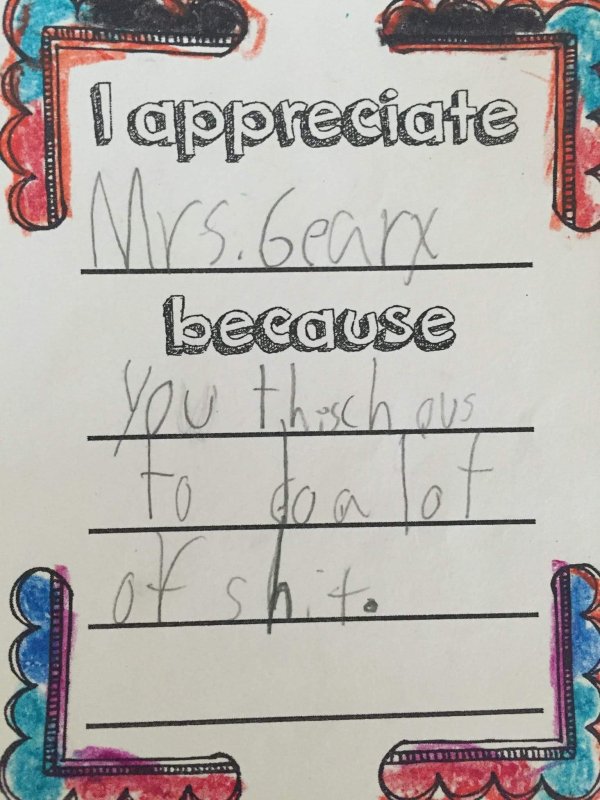 I appreciate
Mrs. Gearx
because
you thisch ous
to do a lot
of shit.